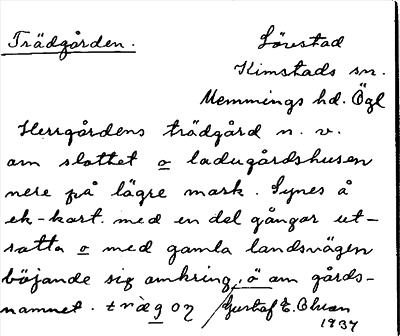 Trädgården. Lövstad
Kimstads sn.
Memmings hd. Ögl
Herrgårdens trädgård n. v.
om slottet o ladugårdshusen
nere på lägre mark. Synes å
ek-kart. med en del gångar ut-
satta o med gamla landsvägen
böjande sig omkring, ö om gårds-
namnet. trægoɳ / Gustaf E. Ohson
1934